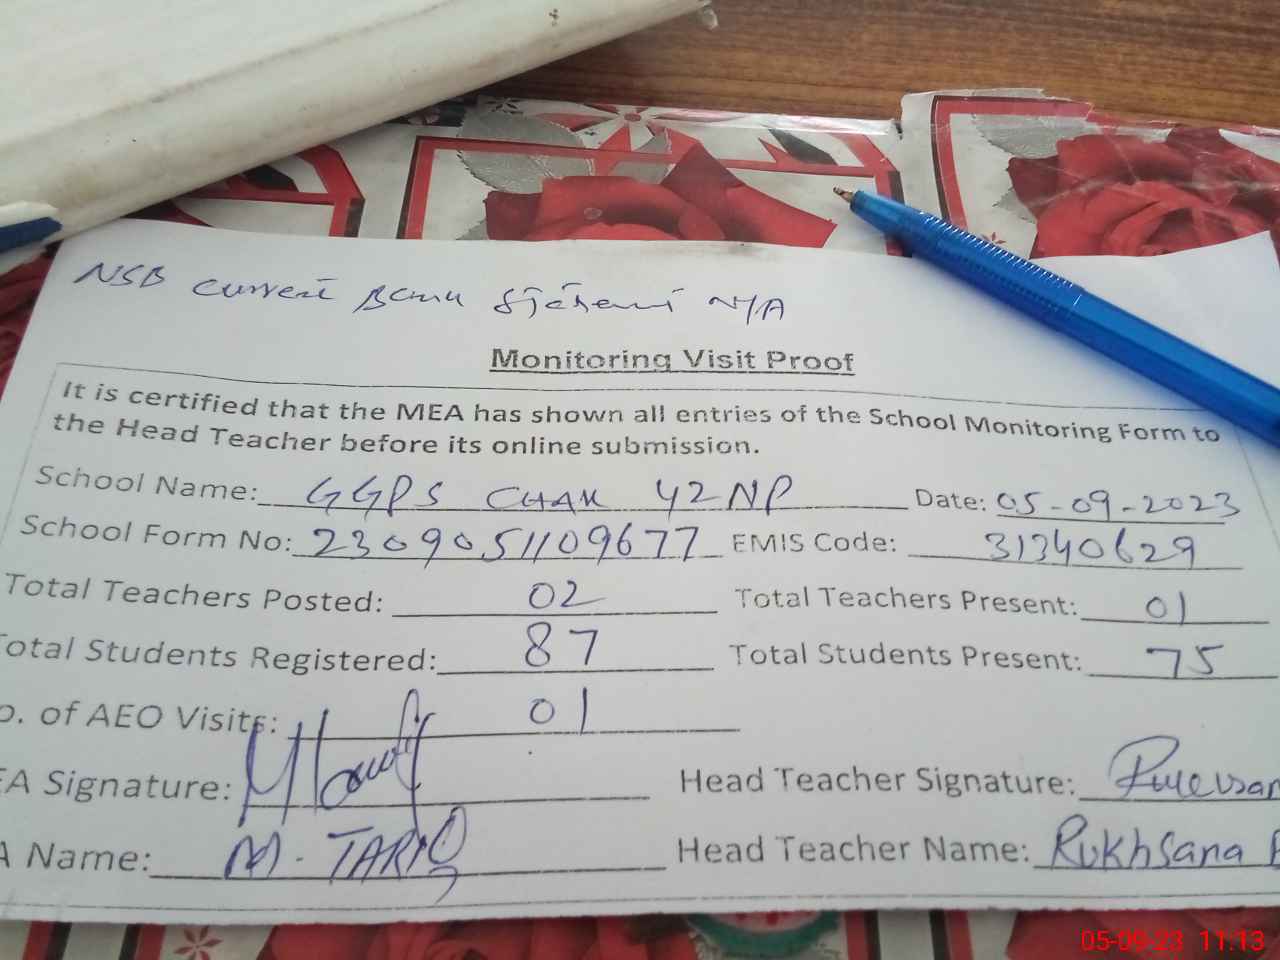 NSB current Bank N/A
Monitoring Visit Proof
It is certified that the MEA has shown all entries of the School Monitoring Form to
the Head Teacher before its online submission.
School Name: GGPS CHAK 42NP Date: 05-09-2023
School Form No: 2309051109677 EMIS Code: 31340629
Total Teachers Posted: 02 Total Teachers Present: 01
otal Students Registered: 87 Total Students Present: 75
o. of AEO Visits: 01
EA Signature: Head Teacher Signature:
A Name: M. TARIQ Head Teacher Name: Rukhsana
05-09-23 11:13